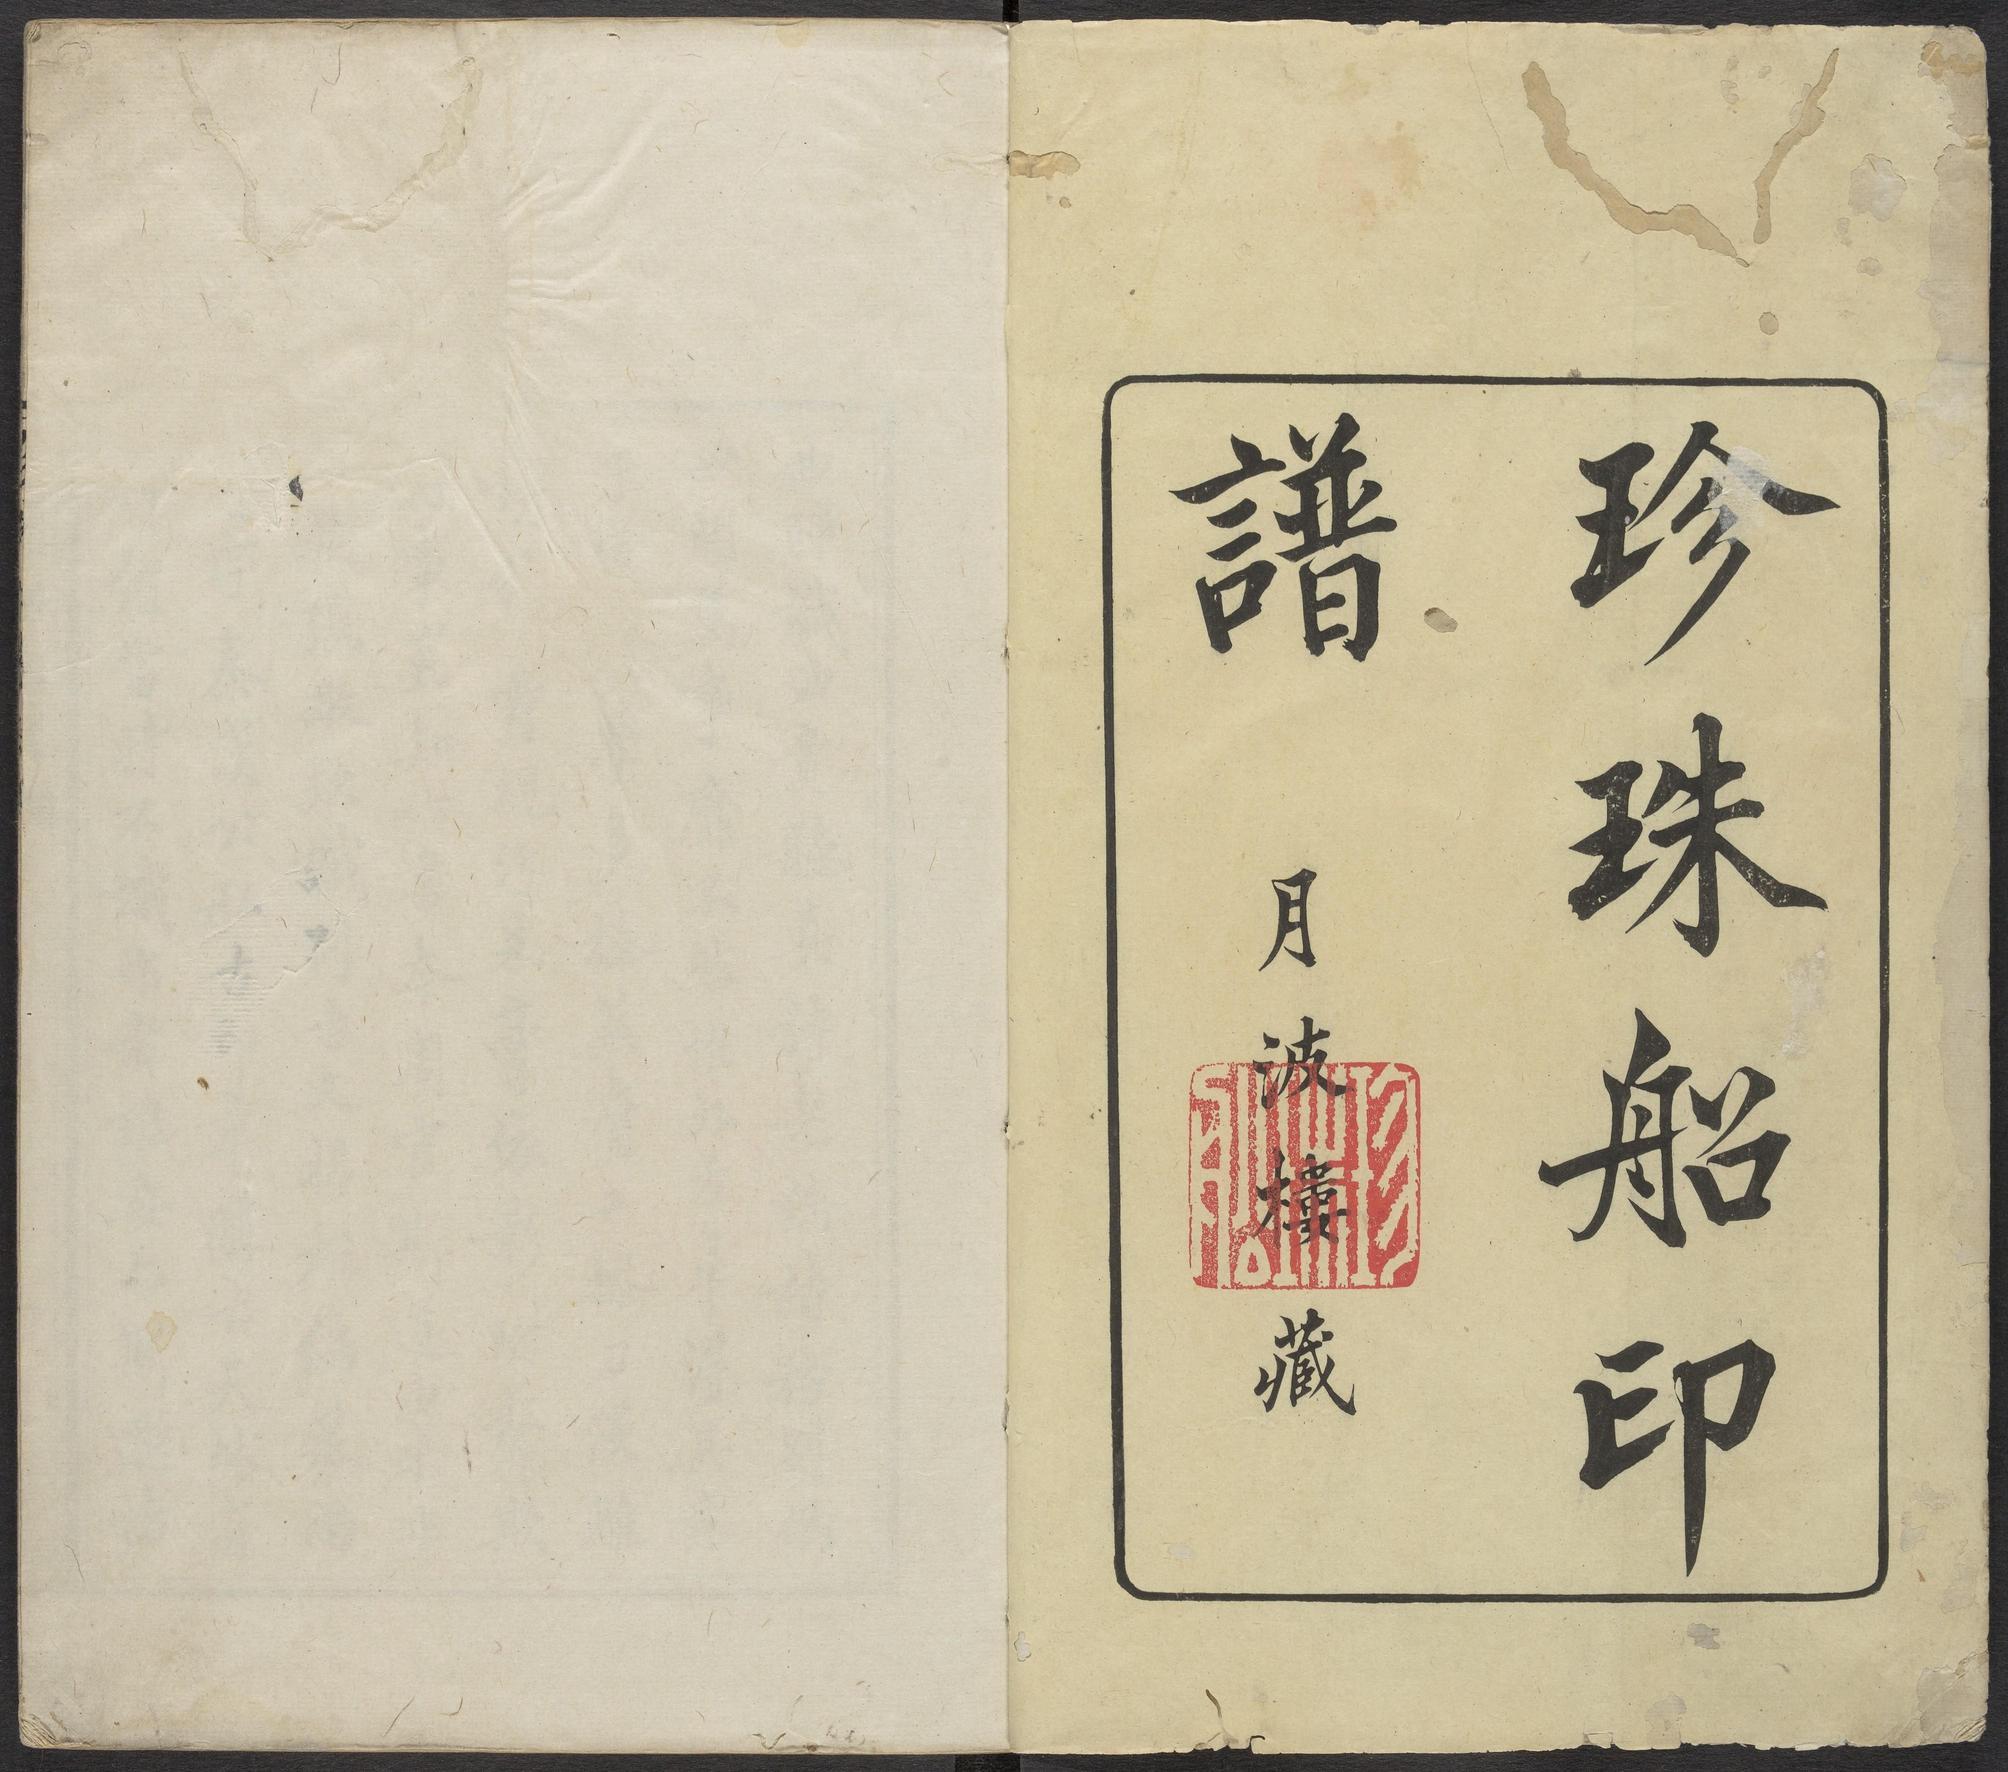 珍珠船印
譜
月波樓藏